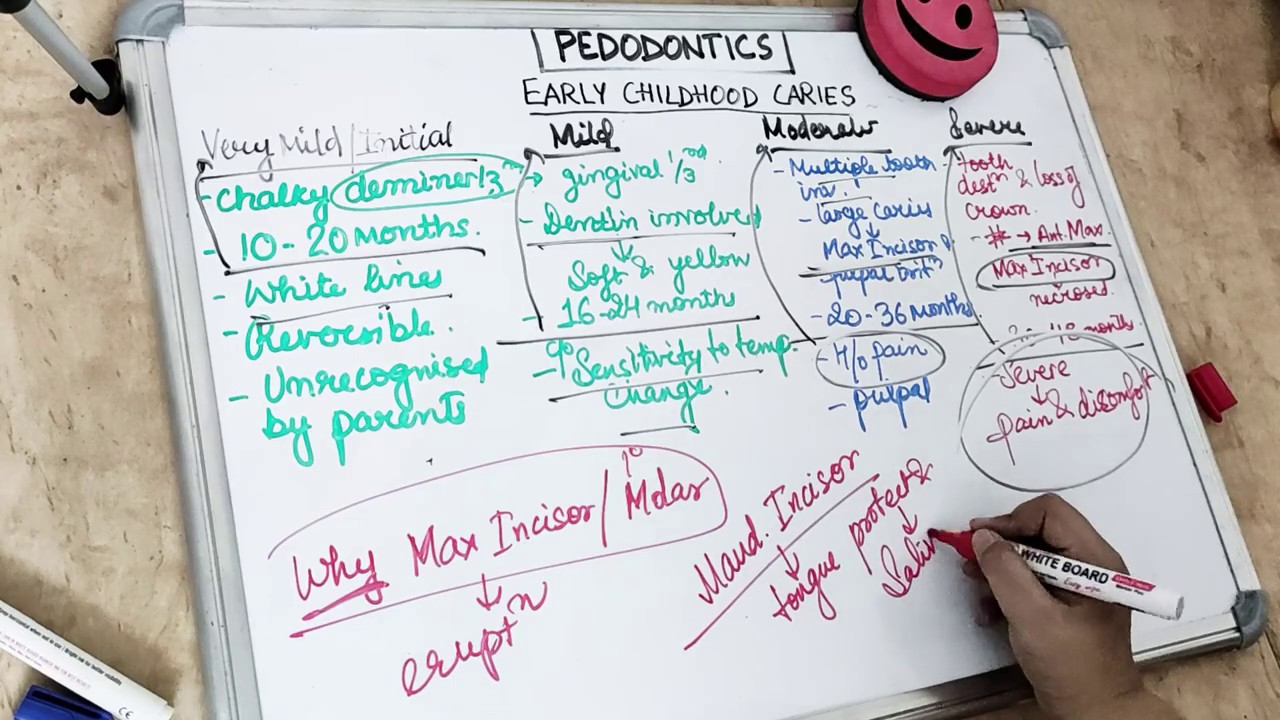 PEDODONTICS
EARLY CHILDHOOD CARIES
Very Mild/Initial
- Chalky deminer
- 10-20 Months.
- White lines
- Reversible.
- Unrecognised
by parents
Mild
→ gingival 1/3rd.
- Dentin involved
↓
Soft & yellow
- 16-24 months
- Sensitivity to temp.
Change.
Moderate
- Multiple tooth
inv.
- large caries
↓
Max Incisor
pulpal
- 20-36 Months
- H/o pain
- pulpal
Severe
- tooth
destn & loss of
Crown.
- # → Ant. Max.
Max Incisor
necrosed.
months.
- Severe
↓
pain & discomfort
Why Max Incisor/ 1° Molar
↓
eruptn
Mand. Incisor
↓
tongue protects
↓
Saliv
WHITE BOARD